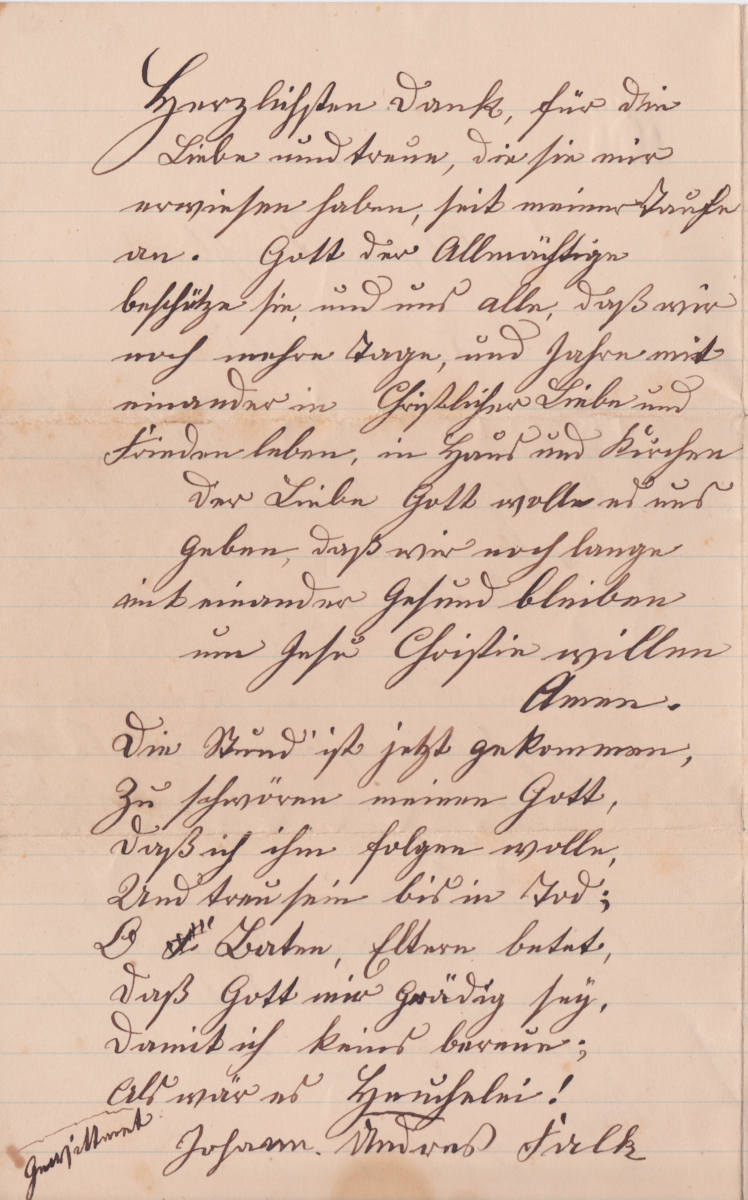 Herzlichsten Dank, für die
Liebe und treue, die sie mir
erwiesen haben, seit meiner Taufe
an. Gott der Allmächtige
beschütze sie, und uns alle, daß wir
noch mehre Tage, und Jahre mit
einander in Christlicher Liebe und
Frieden leben, in Haus und Kirchen
Der Liebe Gott wolle es uns
geben, daß wir noch lange
mit einander Gesund bleiben
um Jesu Christie willen
Amen.
Die Stund' ist jetzt gekommen,
Zu schwören meinen Gott,
Daß ich ihm folgen wolle,
Und treu sein bis in Tod;
O Baten, Eltern betet,
Daß Gott mir gnädig sey,
Damit ich keins bereue;
Als wär es Heuchelei!
Gewittmet
Johann. Andreas Falk